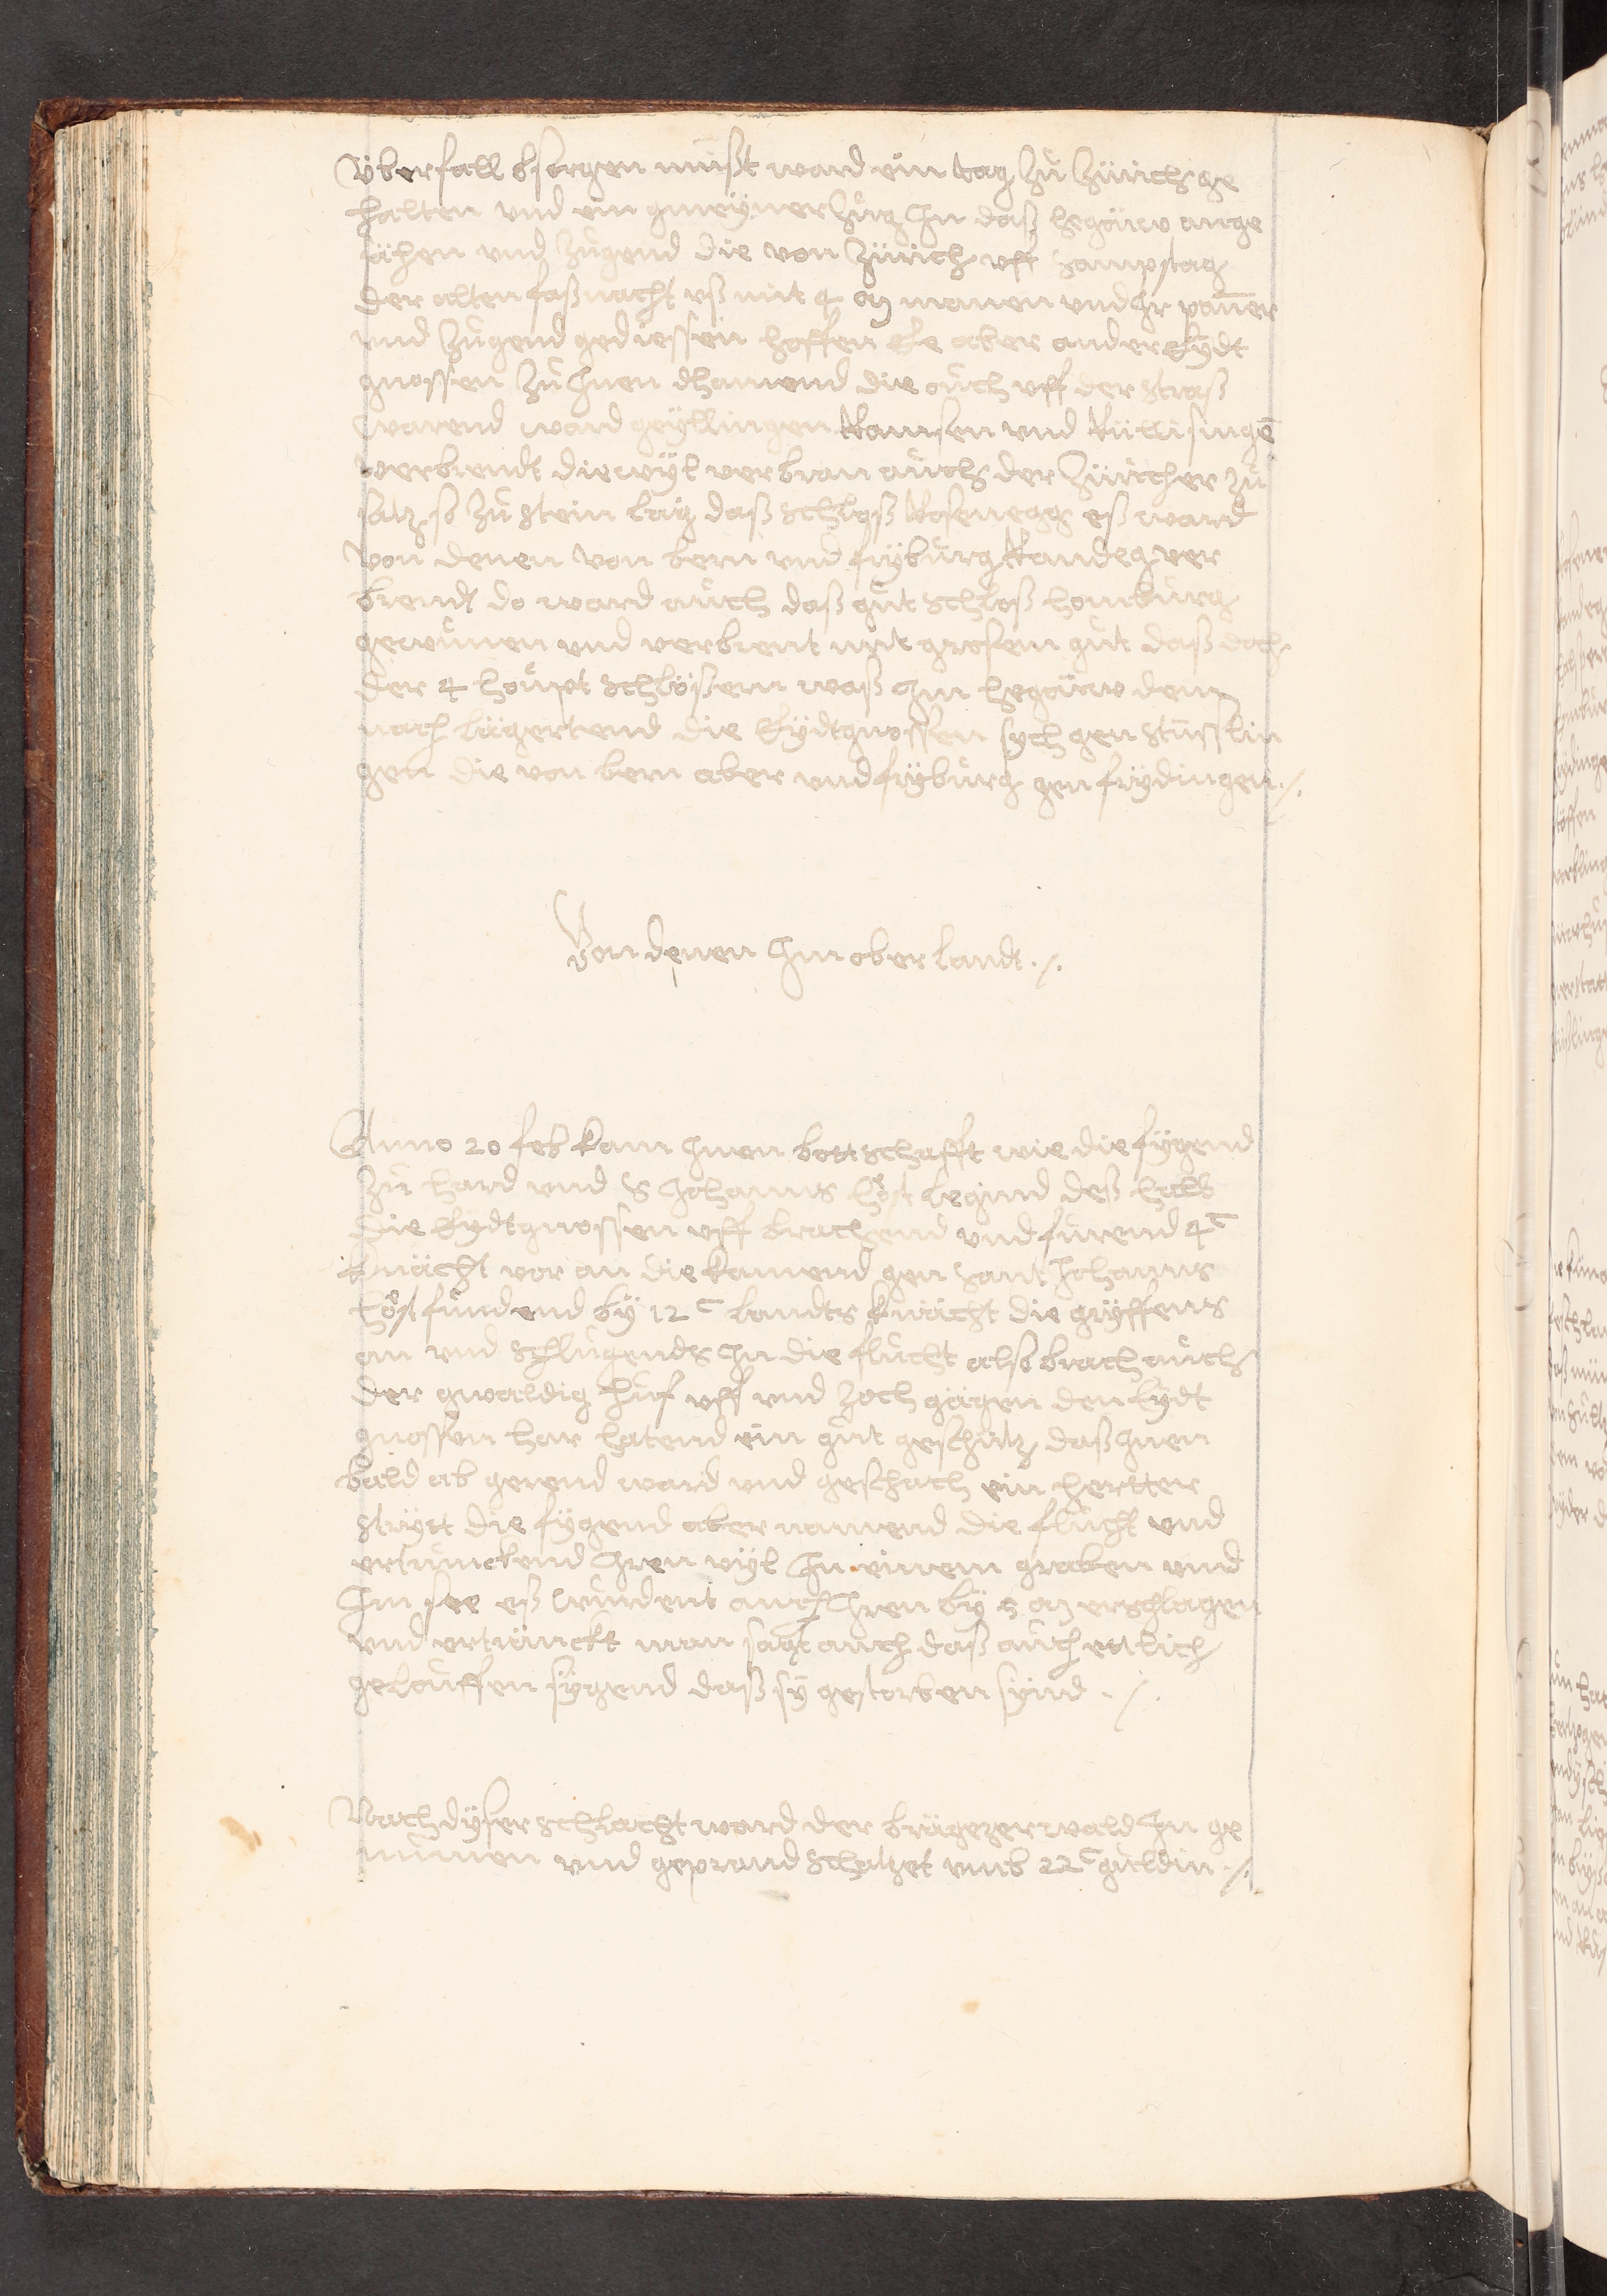 Überfall bsorgen müßt ward ein tag zů Zürich ge
halten vnd ein gmeyner Zůg In daß hegöüw ange
sähen vnd zugend die von Zürich vff Sampstag
der alten faßnacht vß mit 4 M manen vnd Ir paner
vnd Zugend gediessen hoffen Ee aber ander Eydt
gnossen Zů Inen khamend die ouch vff der straß
warend ward geyllingen Ramsen vnd Rüllisingē
verbrendt diewyl verbran auch der Züricher zů
satz so Zů Stein lag daß Schloß Rosenegg eß ward
Von denen von bern vnd fryburg Randeg ver
brendt do ward auch daß gůt Schloß homburg
gewunen vnd verbrent mit grosem gůt daß doch
der 4 houpt Schlößern waß Im hegöuw dem
nach lägertend die Eydtgnossen sych gen Stüsslin
gen die von bern aber vnd fryburg gen frydingen ./.
Von denen Im oberlandt ./.
Anno 20 feb kam Inen bottschafft wie die fygend
Zů hard vnd S Johanns höst legind deß halb
die Eydtgnossen vff brachend vnd fürend 4 C
knächt vor an die kamend gen Sant Johanns
höst fundend by 12 C landts knächt die gryffens
an vnd schlůgends In die flucht also brach auch
der gwaldig huf vff vnd zoch gägen den Eydt
gnossen har hatend ein gůt geschütz daß Inen
bald ab gerend ward vnd geschach ein hertter
stryt die fygend aber namend die flucht vnd
ertrunckend Iren vyl In einem graben vnd
Im see eß wurdent auch Iren by 5 M erschlagen
vnd ertränckt man sagt auch daß auch ettlich
gelouffen sygend daß sy gestorben synd ./.
Nach dyser schlacht ward der brägezerwald In ge
numen vnd geprand schatzet vmb 22 C guldin ./.